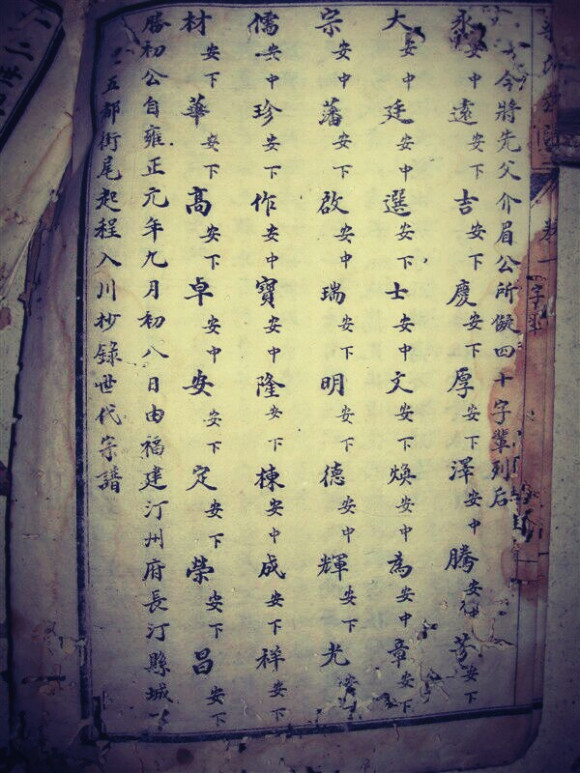 卷一
字輩
今將先父介眉公所儗四十字輩列后
永安中遠安下吉安下慶安下厚安下澤安中騰安中芳安下
大安中廷安中選安下士安中文安下煥安中為安中章安下
宗安中藩安下啟安中瑞安下明安下德安中輝安下光安
儒安中珍安下作安中寶安中隆安下棟安中成安下祥安下
材安下華安下高安下卓安中安安下定安下榮安下昌安下
勝初公自雍正元年九月初八日由福建汀州府長汀縣城
五都街尾起程入川抄錄世代宗譜